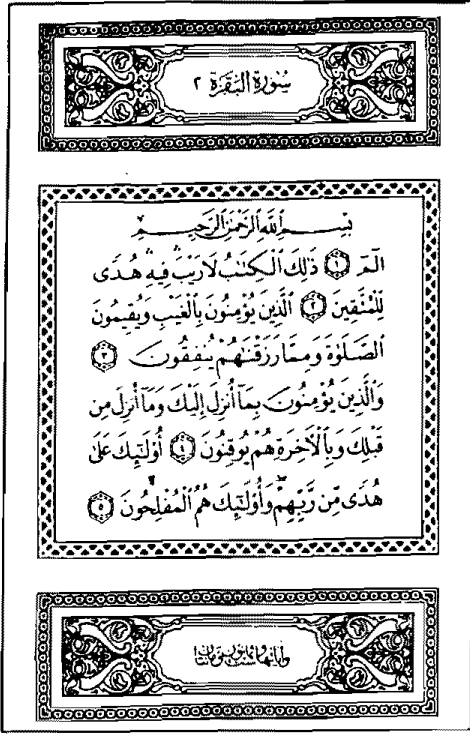 سُورَةُ الْبَقَرَةِ ٢
بِسْمِ اللَّهِ الرَّحْمَٰنِ الرَّحِيمِ
الٓمٓ ١ ذَٰلِكَ ٱلْكِتَٰبُ لَا رَيْبَ ۛ فِيهِ ۛ هُدًى
لِّلْمُتَّقِينَ ٢ ٱلَّذِينَ يُؤْمِنُونَ بِٱلْغَيْبِ وَيُقِيمُونَ
ٱلصَّلَوٰةَ وَمِمَّا رَزَقْنَٰهُمْ يُنفِقُونَ ٣
وَٱلَّذِينَ يُؤْمِنُونَ بِمَآ أُنزِلَ إِلَيْكَ وَمَآ أُنزِلَ مِن
قَبْلِكَ وَبِٱلْءَاخِرَةِ هُمْ يُوقِنُونَ ٤ أُو۟لَٰٓئِكَ عَلَىٰ
هُدًى مِّن رَّبِّهِمْ ۖ وَأُو۟لَٰٓئِكَ هُمُ ٱلْمُفْلِحُونَ ٥